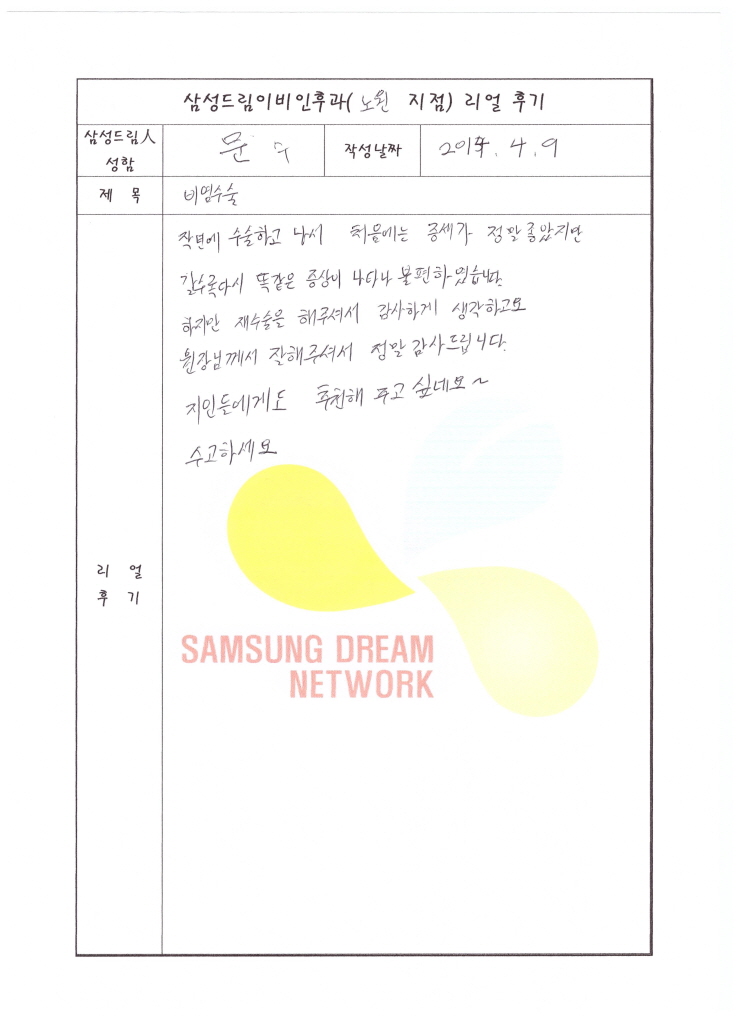 삼성드림이비인후과( 노원 지점) 리얼 후기
삼성드림人 성함
문 수
작성날짜
2014. 4. 9
제 목
비염수술
작년에 수술하고 나서 처음에는 증세가 정말 좋았지만
갈수록 다시 똑같은 증상이 나타나 불편하였습니다.
하지만 재수술을 해주셔서 감사하게 생각하고요
원장님께서 잘해주셔서 정말 감사드립니다.
지인들에게도 추천해 주고 싶네요~
수고하세요
리 얼
후 기
SAMSUNG DREAM
NETWORK